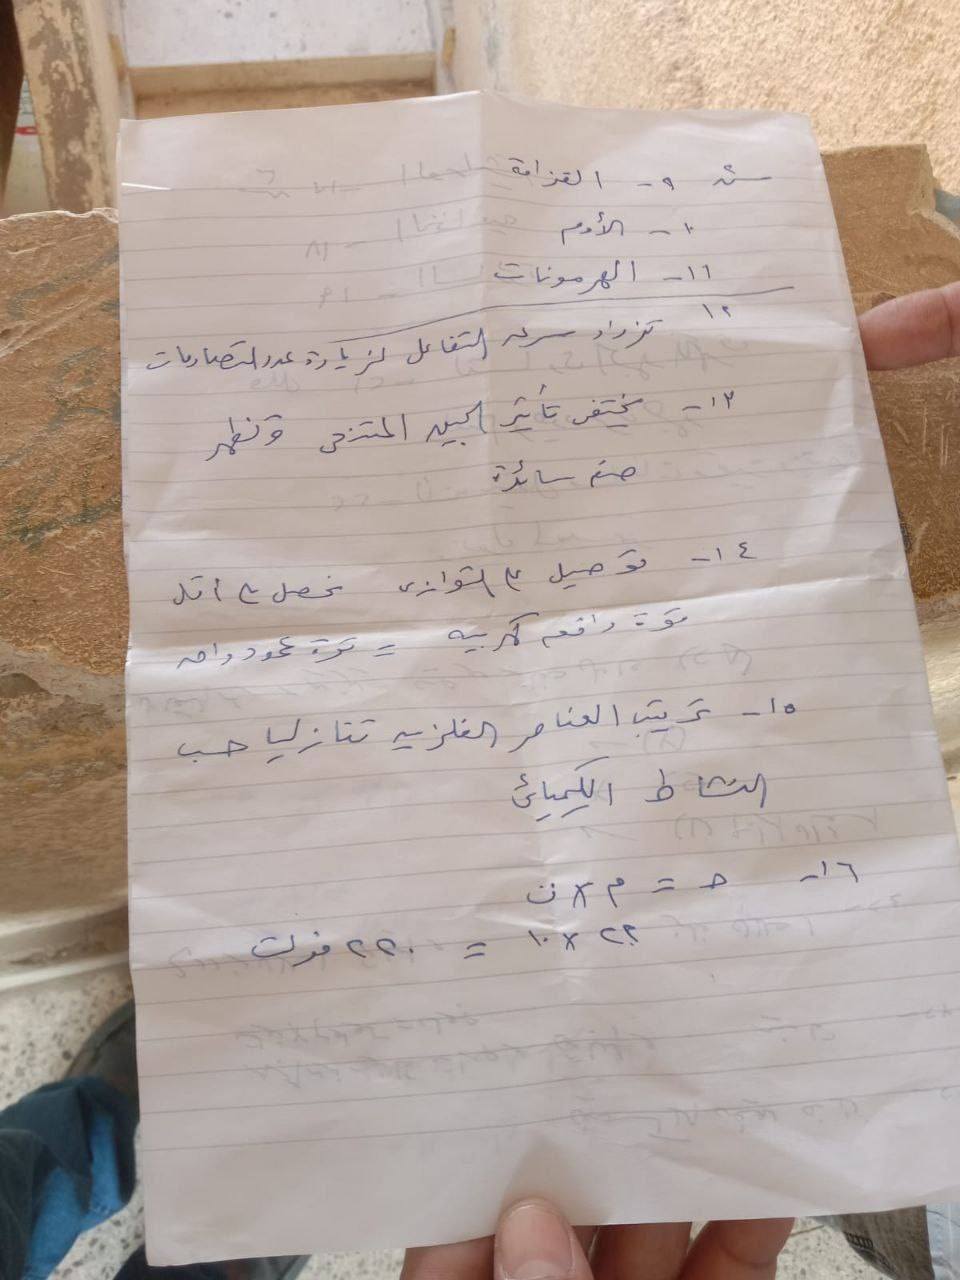 ٩- القزامة
١٠- الأوم
١١- الهرمونات
١٢ تزداد سرعة التفاعل لزيادة عدد التصادمات
١٣- يختفى تأثير الجين المتنحى وتظهر
صفة سائدة
١٤- توصيل ع التوازى نحصل ع أقل
قوة دافعة كهربيه = قوة عمود واحد
١٥- ترتيب العناصر الفلزيه تنازليا حسب
النشاط الكيميائى
١٦- ح = م × ت
٢٢ × ١٠ = ٢٢٠ فولت